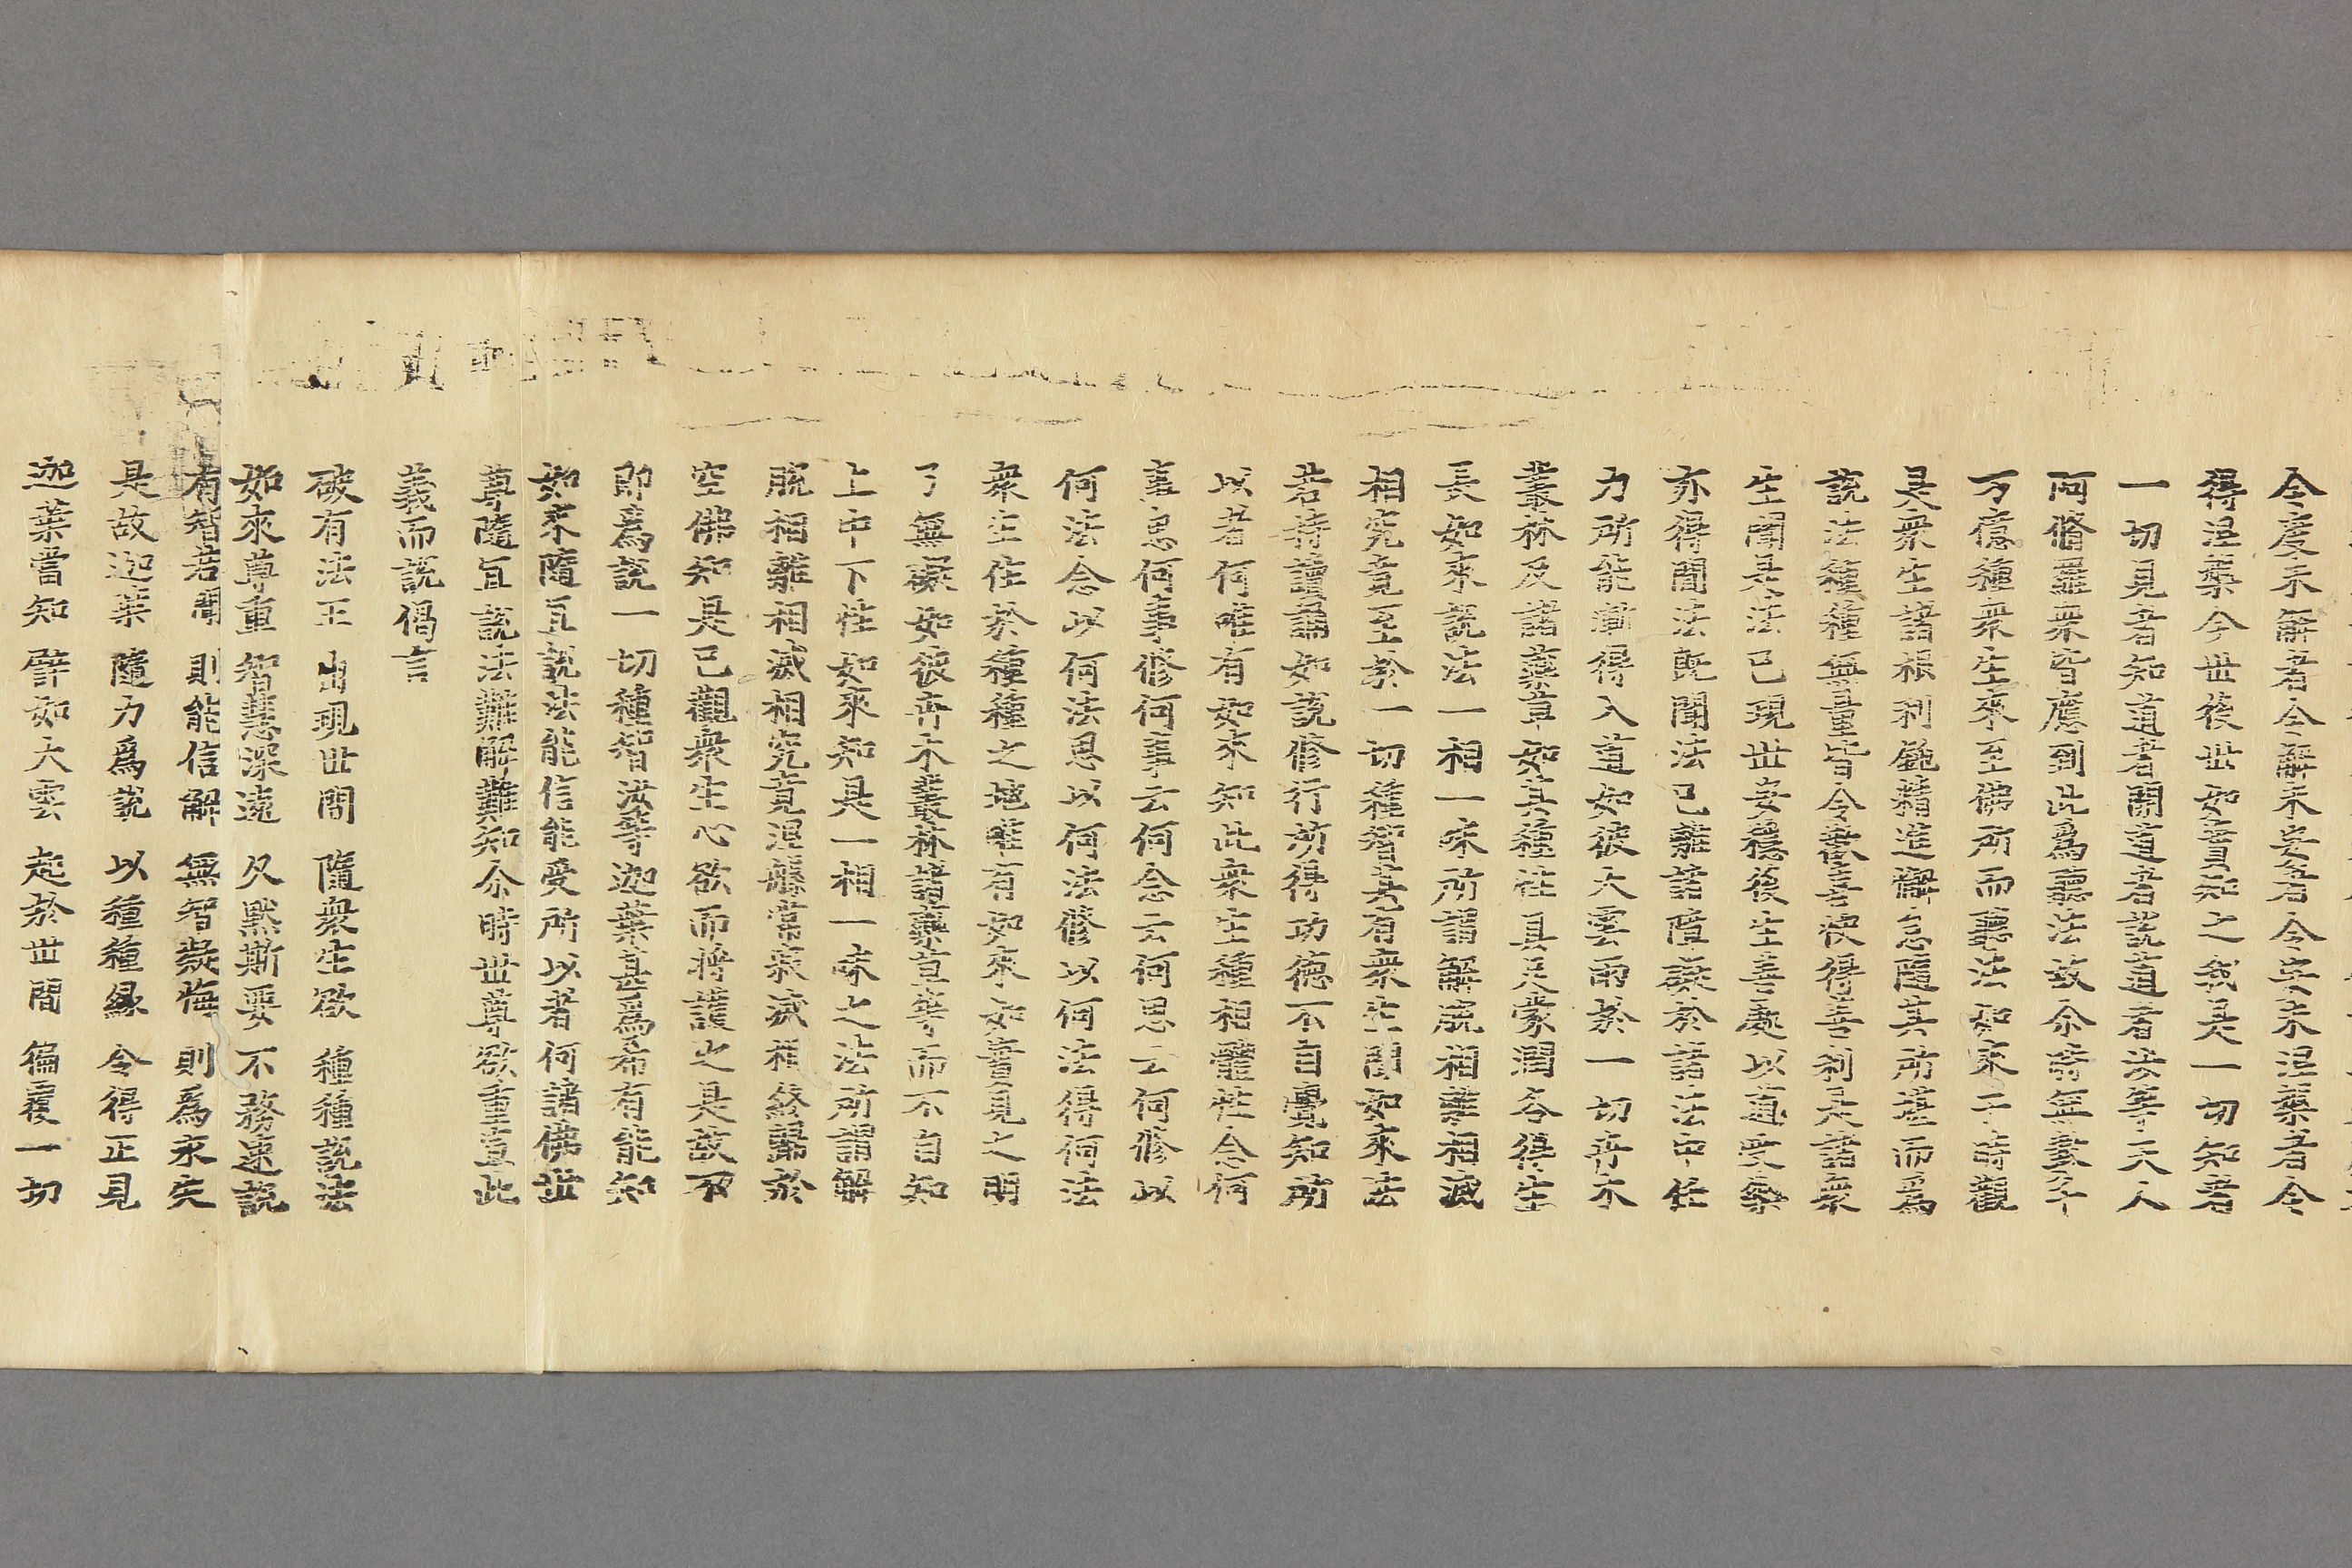 令度未解者令解未安者令安未涅槃者令
得涅槃今世後世如實知之我是一切知者
一切見者知道者開道者說道者汝等天人
阿脩羅衆皆應到此爲聽法故尒時無數千
万億種衆生來至佛所而聽法如來于時觀
是衆生諸根利鈍精進懈怠隨其所堪而爲
說法種種無量皆令歡喜快得善利是諸衆
生聞是法已現世安穩後生善處以道受樂
亦得聞法既聞法已離諸障礙於諸法中任
力所能漸得入道如彼大雲雨於一切卉木
叢林及諸藥草如其種性具足蒙潤各得生
長如來說法一相一味所謂解脫相離相滅
相究竟至於一切種智其有衆生聞如來法
若持讀誦如說修行所得功德不自覺知所
以者何唯有如來知此衆生種相體性念何
事思何事修何事云何念云何思云何修以
何法念以何法思以何法修以何法得何法
衆生住於種種之地唯有如來如實見之明
了無礙如彼卉木叢林諸藥草等而不自知
上中下性如來知是一相一味之法所謂解
脫相離相滅相究竟涅槃常寂滅相終歸於
空佛知是已觀衆生心欲而將護之是故不
即爲說一切種智汝等迦葉甚爲希有能知
如來隨宜說法能信能受所以者何諸佛世
尊隨宜說法難解難知尒時世尊欲重宣此
義而說偈言
破有法王 出現世間 隨衆生欲 種種說法
如來尊重 智慧深遠 久默斯要 不務速說
有智若聞 則能信解 無智疑悔 則爲永失
是故迦葉 隨力爲說 以種種緣 令得正見
迦葉當知 譬如大雲 起於世間 徧覆一切